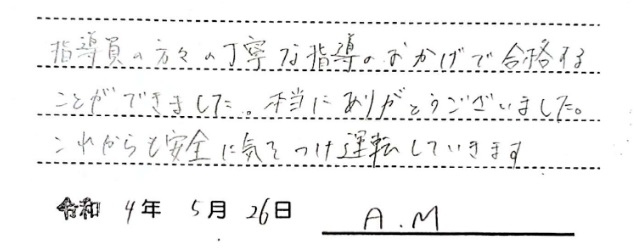 指導員の方々の丁寧な指導のおかげで合格する
ことができました。本当にありがとうございました。
これからも安全に気をつけ運転していきます
令和 4年 5月 26日 A.M